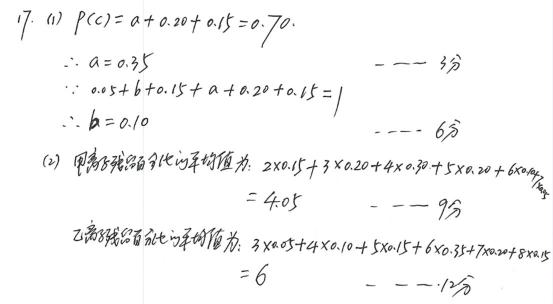 17. (1) P(C) = a + 0.20 + 0.15 = 0.70.
∴ a = 0.35 - - - - 3分
∵ 0.05 + b + 0.15 + a + 0.20 + 0.15 = 1
∴ b = 0.10 - - - - 6分
(2) 甲离子残留百分比的平均值为: 2×0.15 + 3×0.20 + 4×0.30 + 5×0.20 + 6×0.10 + 7×0.05
= 4.05 - - - - 9分
乙离子残留百分比的平均值为: 3×0.05 + 4×0.10 + 5×0.15 + 6×0.35 + 7×0.20 + 8×0.15
= 6 - - - - 12分